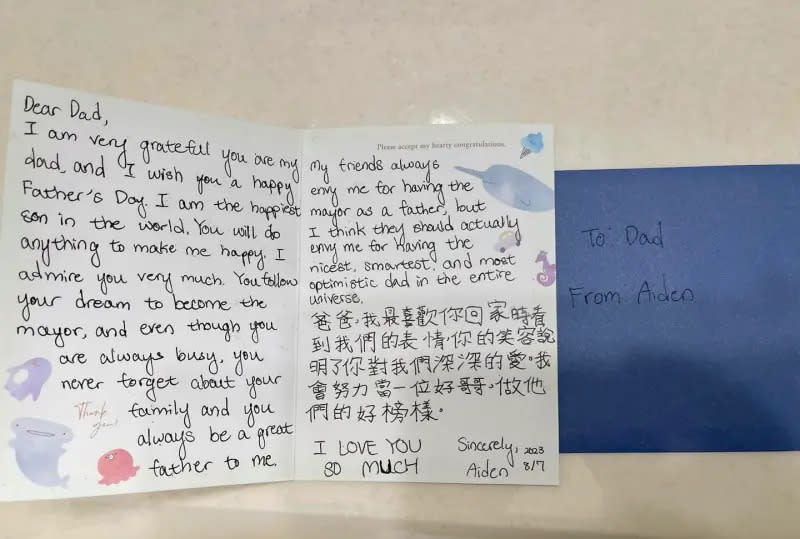 Dear Dad,
I am very grateful you are my
dad, and I wish you a happy
Father's Day. I am the happiest
son in the world. You will do
anything to make me happy. I
admire you very much. You follow
your dream to become the
mayor, and even though you
are always busy, you
never forget about your
family and you
always be a great
father to me.
Thank
you!
Please accept my hearty congratulations.
My friends always
envy me for having the
mayor as a father, but
I think they should actually
envy me for having the
nicest, smartest, and most
optimistic dad in the entire
universe.
爸爸,我最喜歡你回家時看
到我們的表情,你的笑容說
明了你對我們深深的愛。我
會努力當一位好哥哥,做他
們的好榜樣。
I LOVE YOU
SO MUCH
Sincerely,
Aiden
2023
8/7
To: Dad
From Aiden